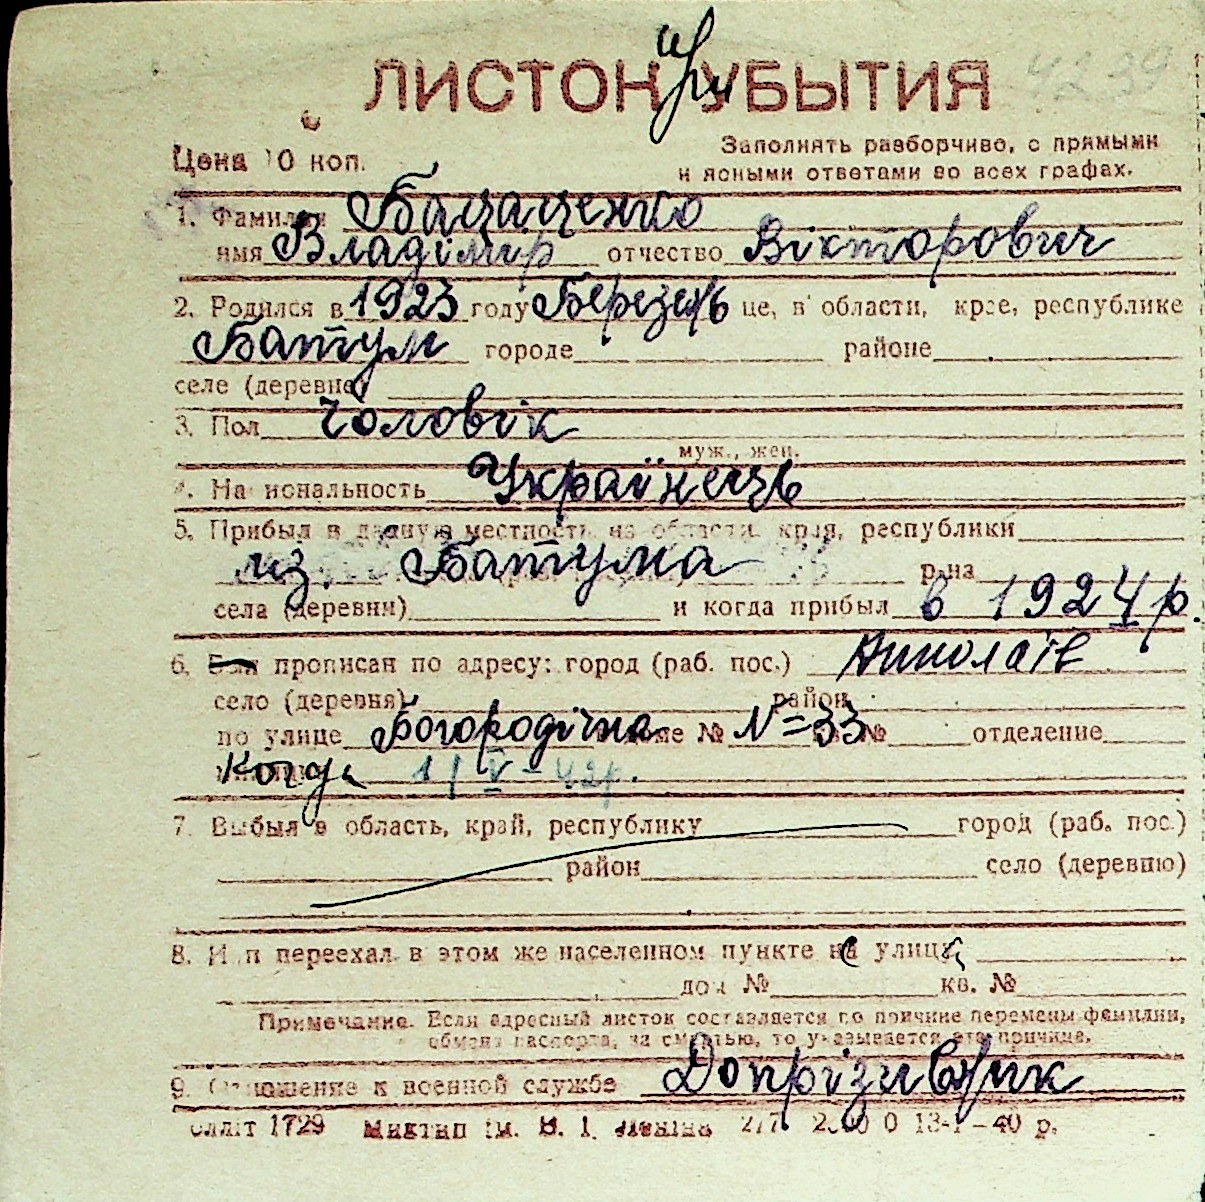 ЛИСТОК при УБЫТИЯ
Цена 10 коп.
Заполнять разборчиво, с прямыми
и ясными ответами во всех графах.
1. Фамилия Бащащенко
имя Владімир отчество Вікторович
2. Родился в 1923 году Березень це, в области, крае, республике
Батум городе районе
селе (деревне)
3. Пол чоловік
муж., жен.
4. Национальность Українець
5. Прибыл в данную местность из области, края, республики
из Батума р-на
села (деревни) и когда прибыл в 1924 р.
6. Был прописан по адресу: город (раб. пос.) Николаів
село (деревня) район
по улице Богородічна доме № N=33 кв. № отделение
Когда 1/V-42р.
7. Выбыл в область, край, республику город (раб. пос.)
район село (деревню)
8. И п переехал в этом же населенном пункте на улицу
дом № кв. №
Примечание. Если адресный листок составляется по причине перемены фамилии,
обмена паспорта, за смертью, то указывается эта причина.
9. Отношение к военной службе Допрізивник
Оллiт 1729 Миктип ім. В. І. Леніна 13-I-40 р.